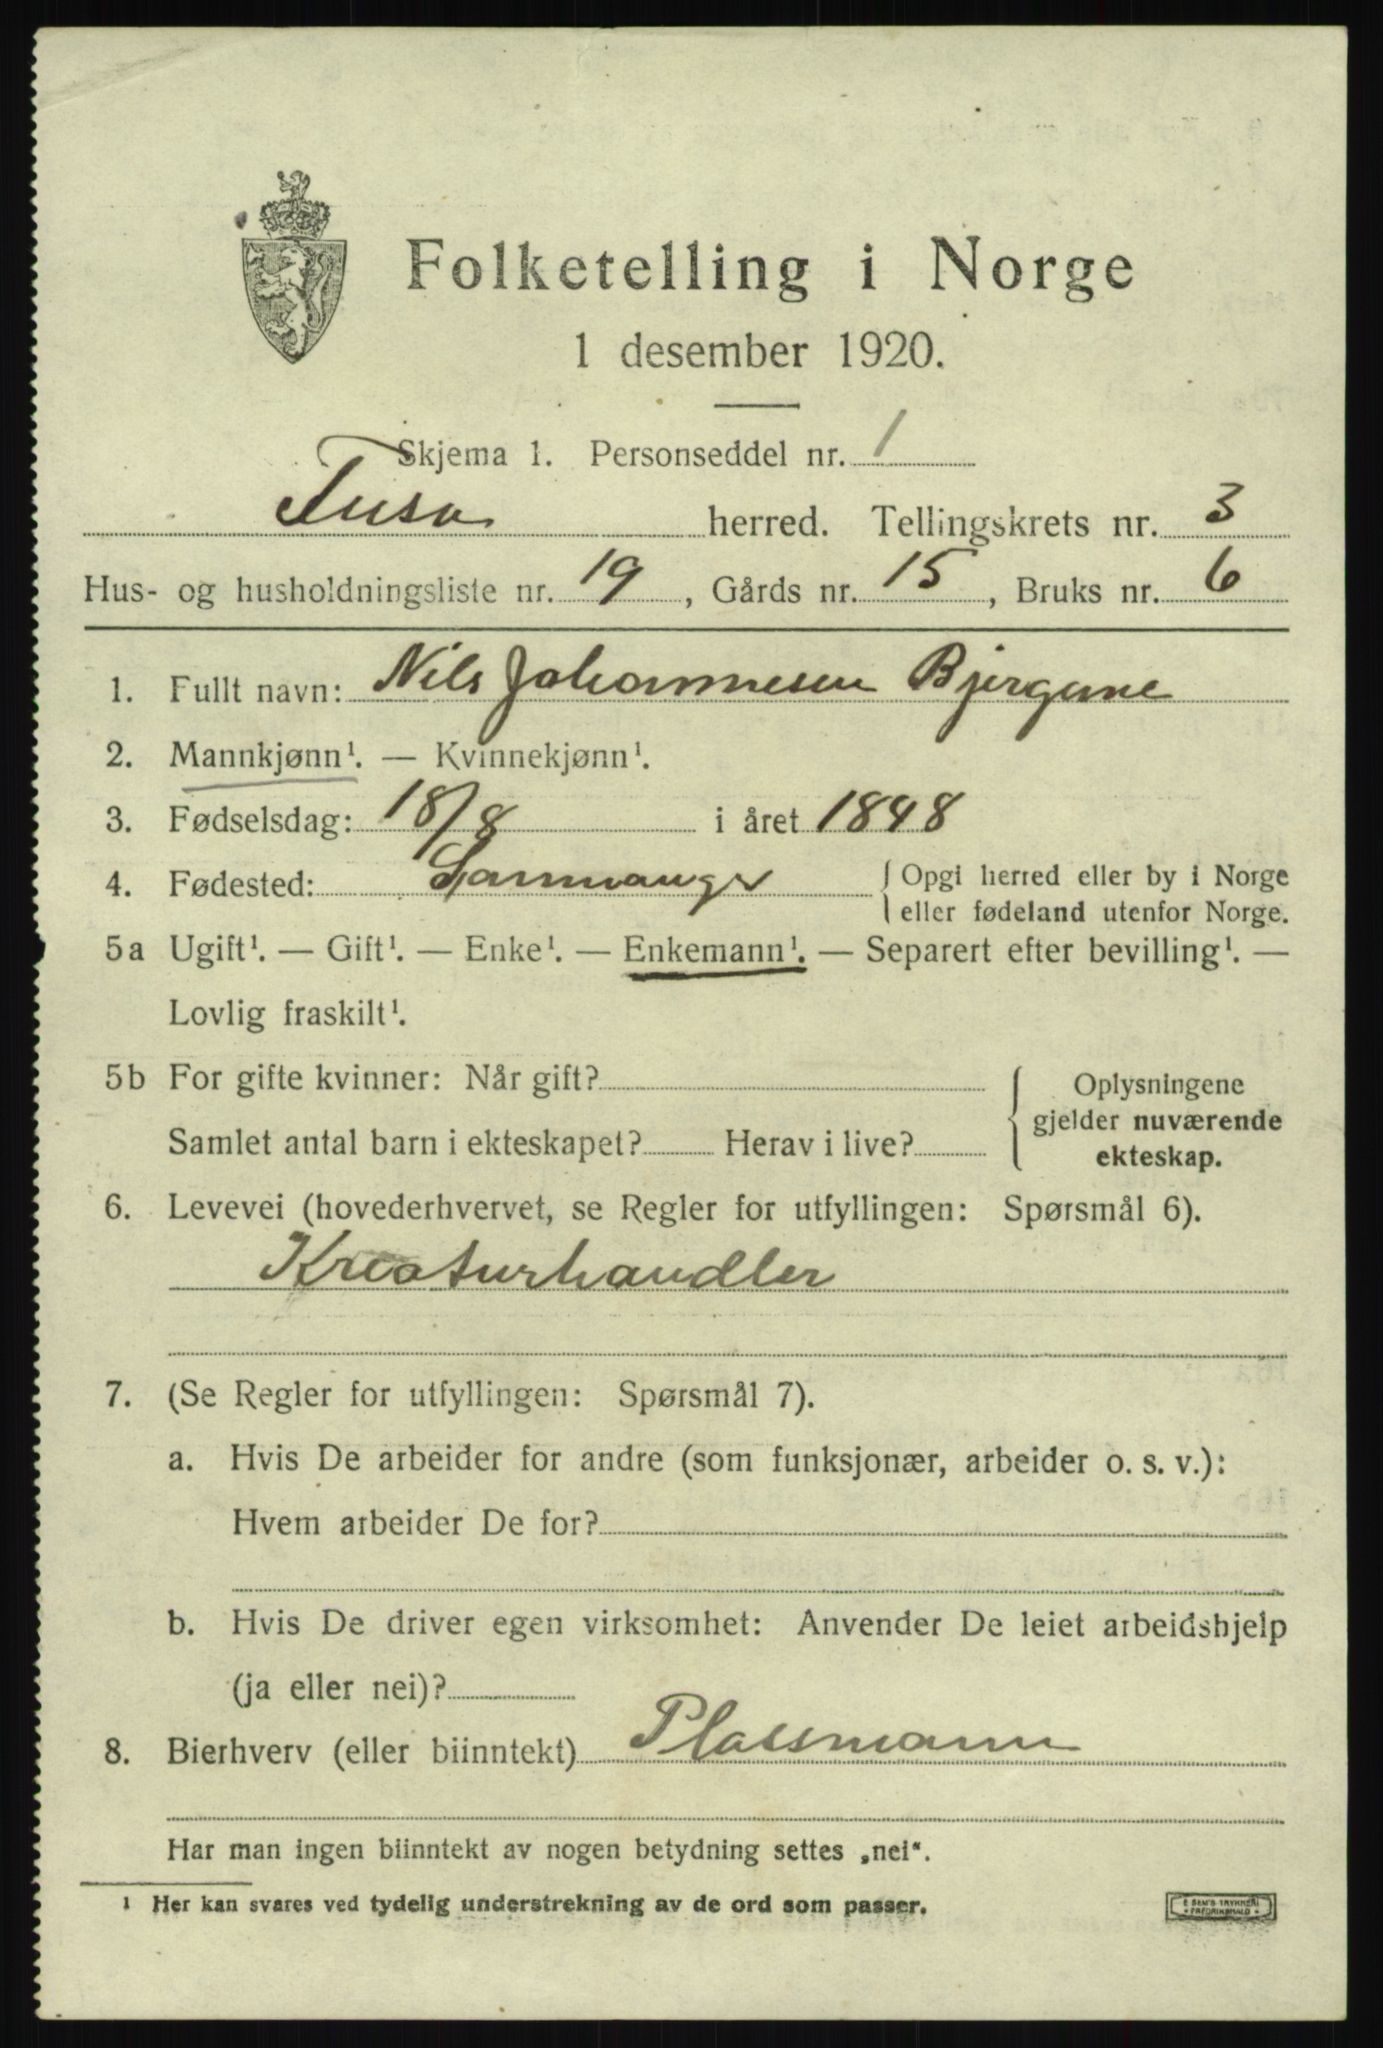 Folketelling i Norge
1 desember 1920.
Skjema 1. Personseddel nr. 1
Fusa herred. Tellingskrets nr. 3
Hus- og husholdningsliste nr. 19, Gårds nr. 15, Bruks nr. 6
1. Fullt navn: Nils Johannesen Bjergene
2. Mannkjønn¹. — Kvinnekjønn¹.
3. Fødselsdag: 18/8 i året 1848
4. Fødested: Samnanger { Opgi herred eller by i Norge
eller fødeland utenfor Norge.
5a Ugift¹. — Gift¹. — Enke¹. — Enkemann¹. — Separert efter bevilling¹. —
Lovlig fraskilt¹.
5b For gifte kvinner: Når gift? { Oplysningene
gjelder nuværende
Samlet antal barn i ekteskapet? Herav i live?
ekteskap.
6. Levevei (hovederhvervet, se Regler for utfyllingen: Spørsmål 6).
Kreaturhandler
7. (Se Regler for utfyllingen: Spørsmål 7).
a. Hvis De arbeider for andre (som funksjonær, arbeider o. s. v.):
Hvem arbeider De for?
b. Hvis De driver egen virksomhet: Anvender De leiet arbeidshjelp
(ja eller nei)?
8. Bierhverv (eller biinntekt) Plassmann
Har man ingen biinntekt av nogen betydning settes „nei“.
¹ Her kan svares ved tydelig understrekning av de ord som passer.